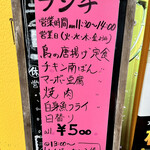 ランチ
営業時間 am11:30~14:00
営業日(火・水・木・金)
鳥の唐揚げ定食
チキン南ばん
マーボー豆腐
焼肉
白身魚フライ
日替り
all ¥500